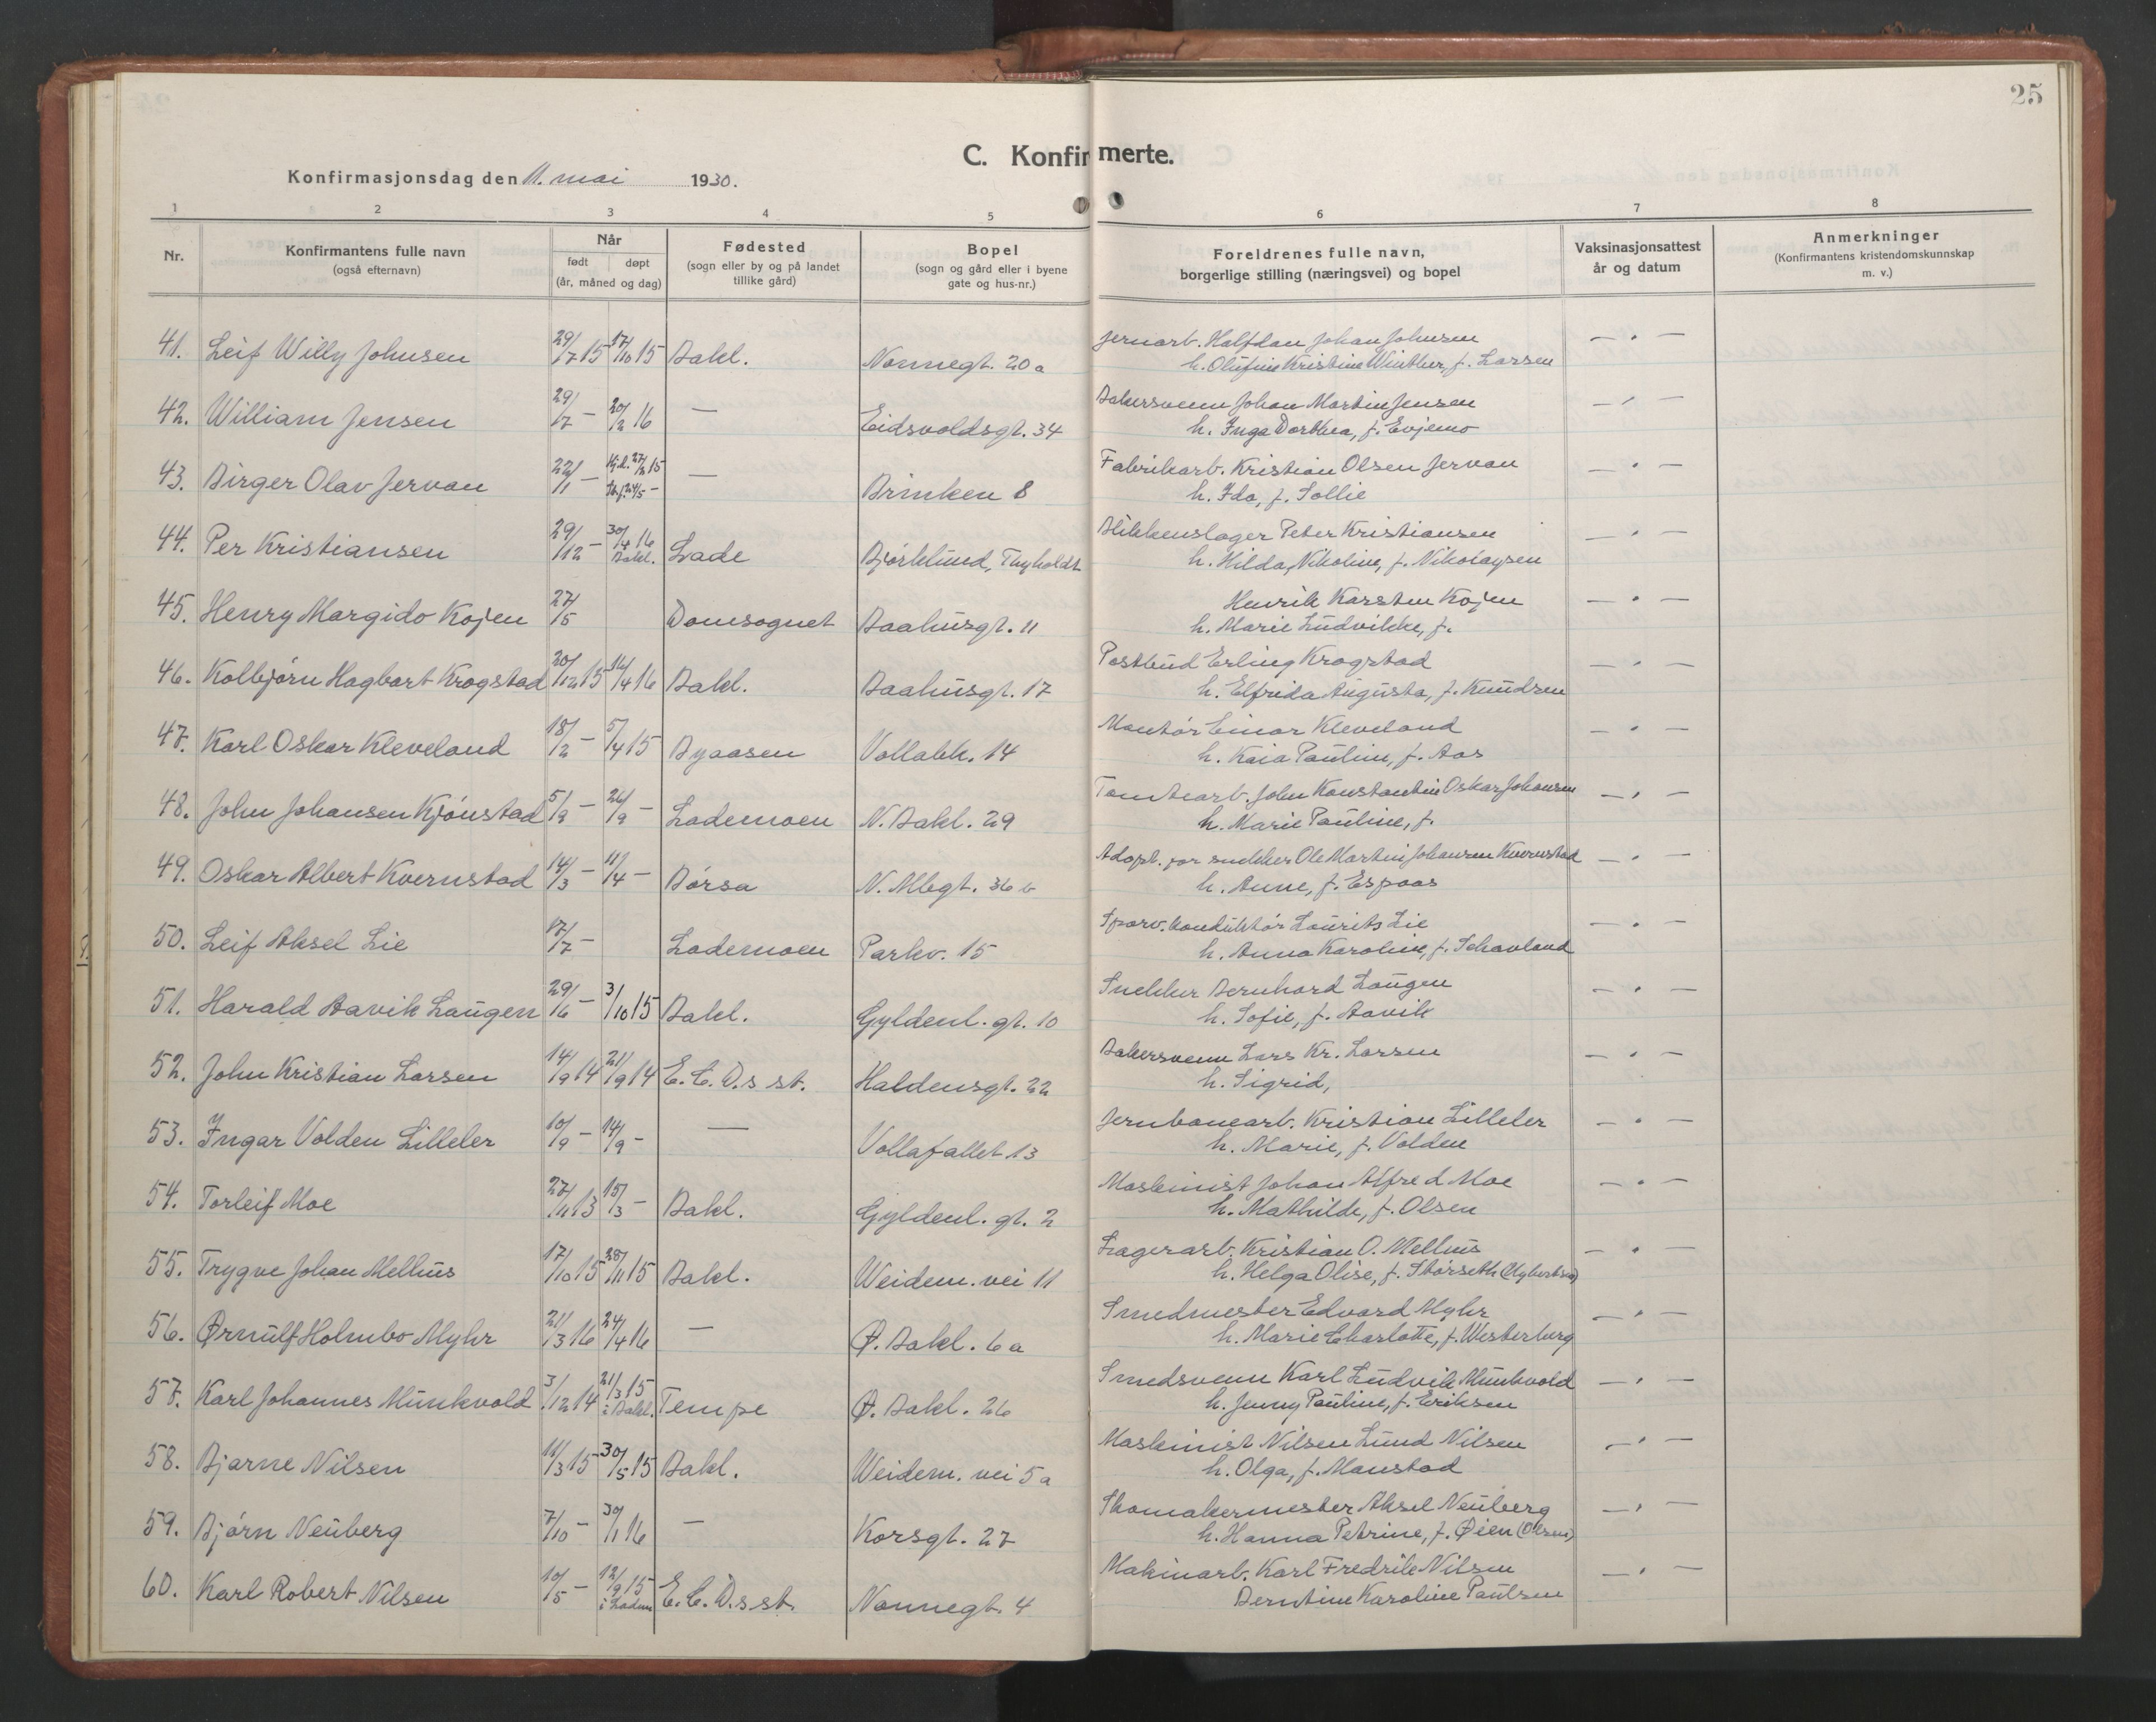 25
C. Konfirmerte.
Konfirmasjonsdag den 11. mai 1930.
1 2 3 4 5 6 7 8
Nr. Konfirmantens fulle navn (også efternavn) Når født døpt (år, måned og dag) Fødested (sogn eller by og på landet tillike gård) Bopel (sogn og gård eller i byene gate og hus-nr.) Foreldrenes fulle navn, borgerlige stilling (næringsvei) og bopel Vaksinasjonsattest år og datum Anmerkninger (Konfirmantens kristendomskunnskap m. v.)
41. Leif Willy Johnsen 29/7 15 17/10 15 Bakl. Nonnegt. 20a Jernarb. Halfdan Johan Johnsen — " —
h. Olufine Kristine Winther, f. Larsen
42. William Jensen 29/7 — 20/2 16 — Eidsvoldsgt. 34 Bakersvenn Johan Martin Jensen — " —
h. Inga Dorthea, f. Evjemo
43. Birger Olav Jervan 22/1 — Hj.d. 27/2 15 — Brinken 8 Fabrikarb. Kristian Olsen Jervan — " —
St.f. 24/5 — h. Ida, f. Sollie
44. Per Kristiansen 29/12 — 30/4 16 Bakl. Lade Bjørklund, Thyholdt Blikkenslager Peter Kristiansen — " —
h. Hilda Nikoline, f. Nikolaysen
45. Henry Margido Kojen 27/5 Domsognet Baahusgt. 11 Henrik Karsten Kojen — " —
h. Marie Ludvikke, f.
46. Kolbjørn Hagbart Krogstad 20/12 15 16/4 16 Bakl. Baahusgt. 17 Postbud Erling Krogstad — " —
h. Elfrida Augusta, f. Knudsen
47. Karl Oskar Kleveland 18/2 — 5/4 15 Byaasen Vollabk. 14 Montør Einar Kleveland — " —
h. Kaia Pauline, f. Aas
48. John Johansen Kjønstad 5/9 — 26/9 — Lademoen N. Bakl. 29 Tomtearb. John Konstantin Oskar Johansen — " —
h. Marie Pauline, f.
49. Oskar Albert Kvernstad 14/3 — 11/4 — Børsa N. Allegt. 36 b Adopt. far snekker Ole Martin Johansen Kvernstad — " —
h. Anne, f. Espaas
50. Leif Aksel Lie 17/7 — Lademoen Parkv. 15 Sporv.konduktør Laurits Lie — " —
h. Anna Karoline, f. Schavland
51. Harald Aavik Laugen 29/6 — 3/10 15 Bakl. Gyldenl. gt. 10 Snekker Bernhard Laugen — " —
h. Sofie, f. Aavik
52. John Kristian Larsen 14/9 14 21/9 14 E. C. D.s st. Haldensgt. 22 Bakersvenn Lars Kr. Larsen — " —
h. Sigrid,
53. Ingar Volden Lilleler 10/9 — 14/9 — — Vollafallet 13 Jernbanearb. Kristian Lilleler — " —
h. Marie, f. Volden
54. Torleif Moe 27/11 13 15/3 — Bakl. Gyldenl. gt. 2 Maskinist Johan Alfred Moe — " —
h. Mathilde, f. Olsen
55. Trygve Johan Melhus 17/10 15 28/11 15 Bakl. Weidem. vei 11 Lagerarb. Kristian O. Melhus — " —
h. Helga Olise, f. Størseth
56. Ørnulf Holmbo Myhr 21/3 16 24/4 16 — Ø. Bakl. 6a Smedmester Edvard Myhr — " —
h. Marie Charlotte, f. Westerberg
57. Karl Johannes Munkvold 3/12 14 21/3 15 i Bakl. Tempe Ø. Bakl. 26 Smedsvenn Karl Ludvik Munkvold — " —
h. Jenny Pauline, f. Eriksen
58. Bjarne Nilsen 11/3 15 30/5 15 Bakl. Weidem. vei 5a Maskinist Nilsen Lund Nilsen — " —
h. Olga, f. Manstad
59. Bjørn Neuberg 7/10 — 30/1 16 — Korsgt. 27 Skomakermester Aksel Neuberg — " —
h. Hanna Petrine, f. Øien (Olsen)
60. Karl Robert Nilsen 10/5 — 12/9 15 i Ladem E. C. D.s st. Nonnegt. 4 Makinarb. Karl Fredrik Nilsen — " —
Berntine Karoline Paulsen